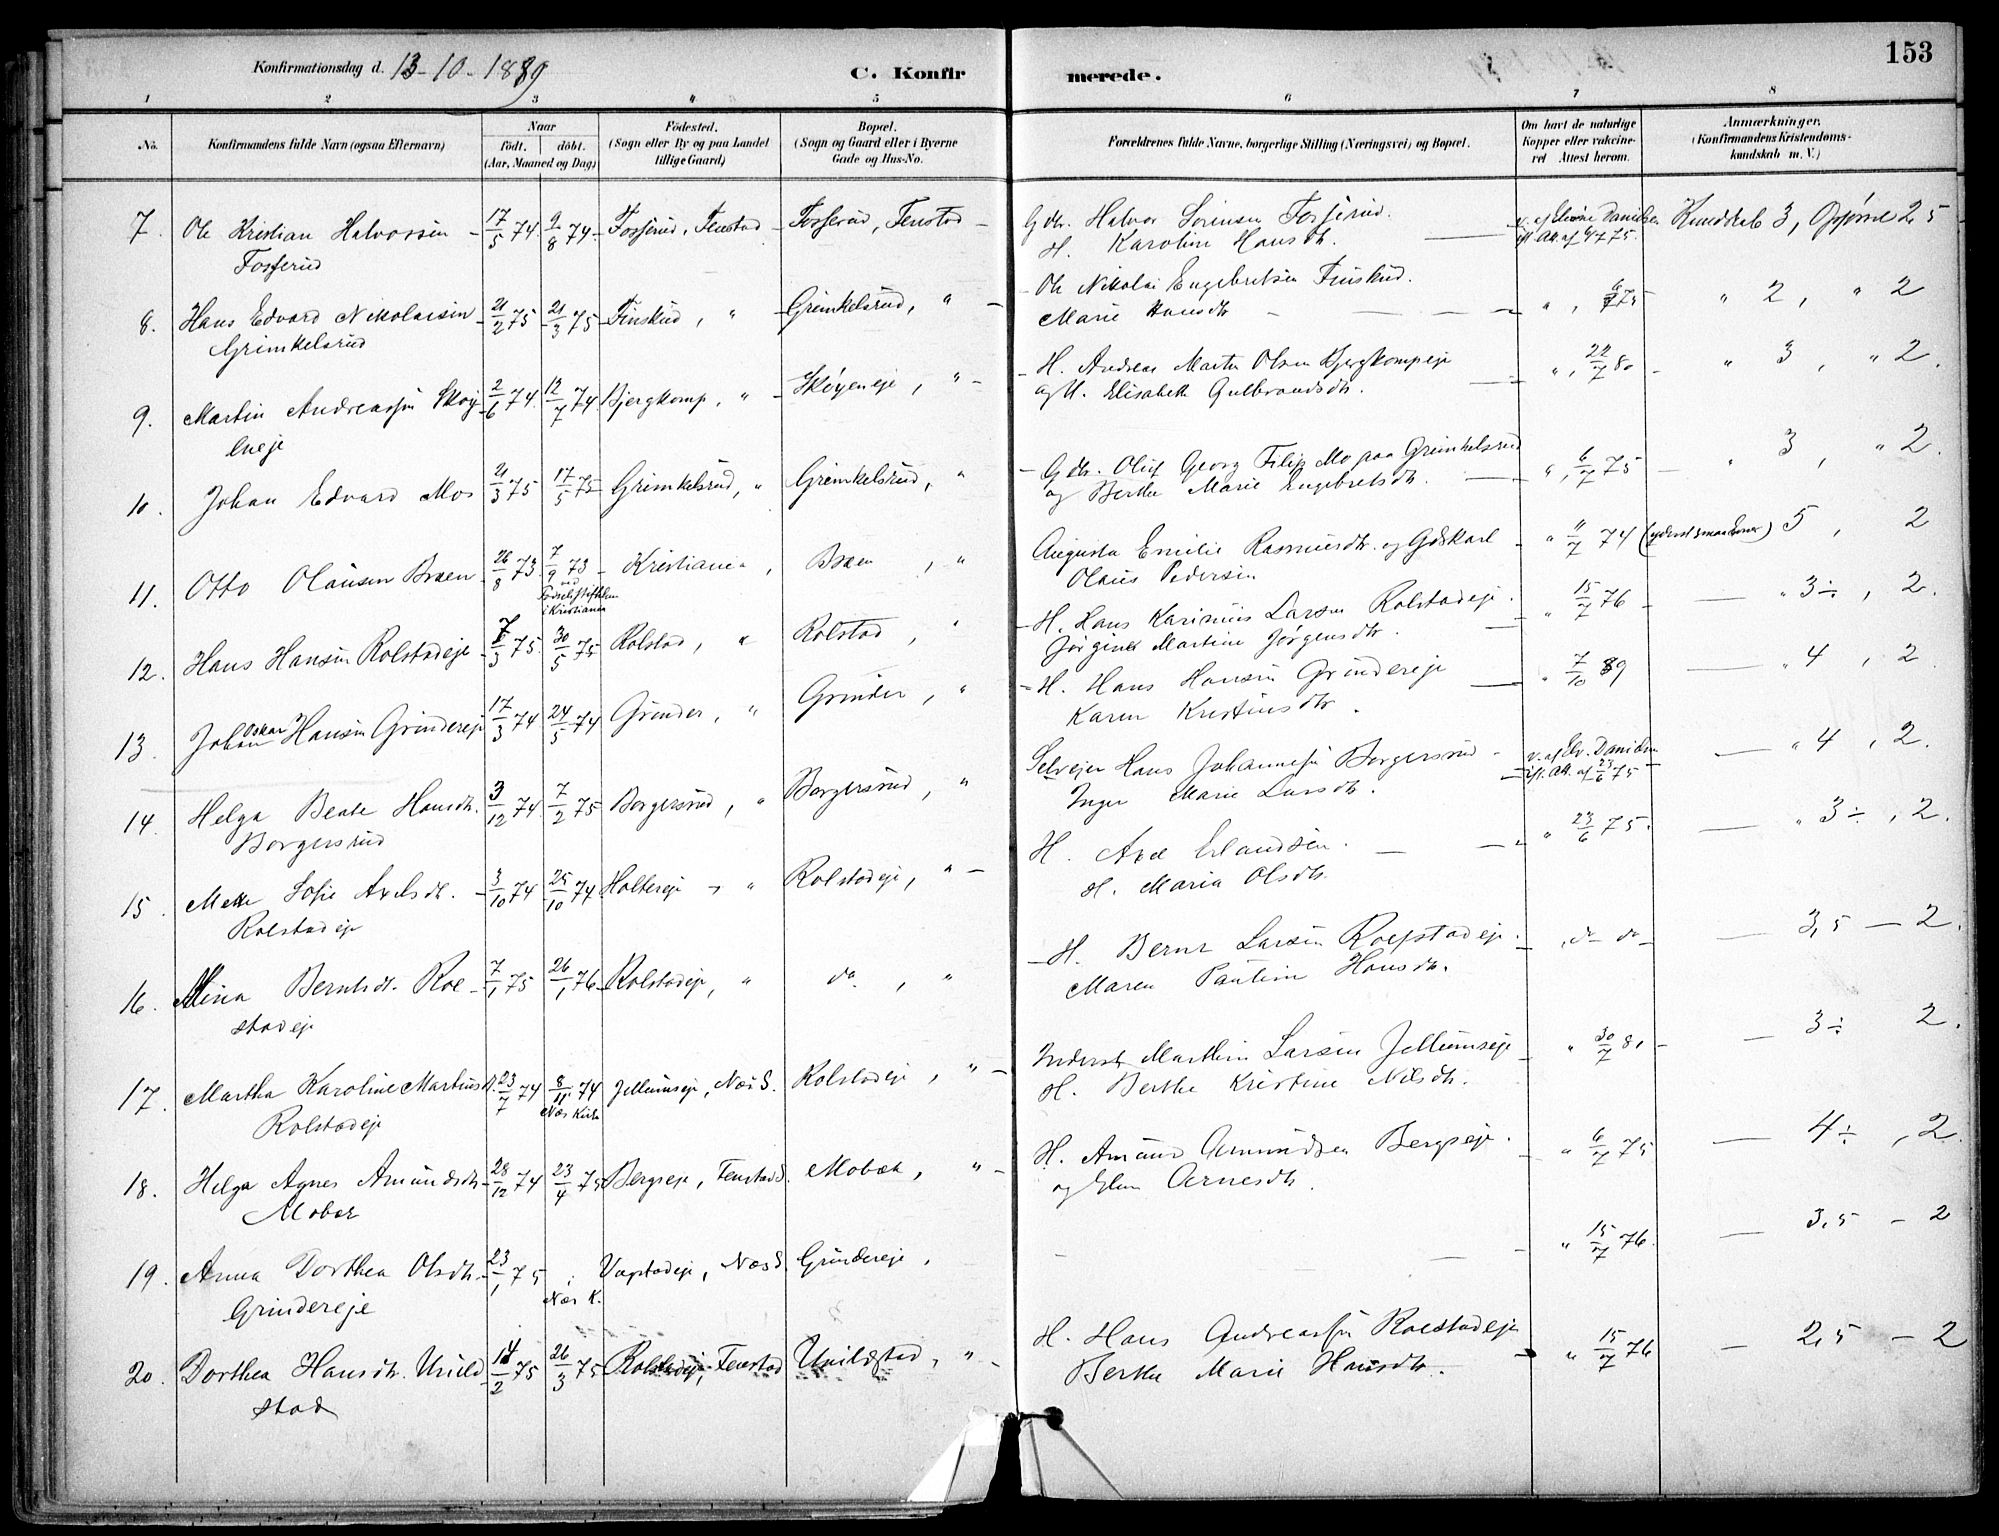 153
Konfirmationsdag d. 13-10-1889
C. Konfir merede.
1 2 3 4 5 6 7 8
No.
Konfirmandens fulde Navn (ogsaa Efternavn)
Naar
født. døbt.
(Aar, Maaned og Dag)
Fødested.
(Sogn eller By og paa Landet
tillige Gaard)
Bopæl.
(Sogn og Gaard eller i Byerne
Gade og Hus-No.
Forældrenes fulde Navne, borgerlige Stilling (Næringsvei) og Bopæl.
Om havt de naturlige
Kopper eller vakcine-
ret Attest herom.
Anmærkninger.
(Konfirmandens Kristendoms-
kundskab m. V.)
7. Ole Kristian Halvorsen 17/5 74 2/8 74 Fosserud, Fenstad Fosserud, Fenstad Gdr. Halvor Sørensen Fosserud. Kundskab 3, Opførsel 2,5
Fosserud H. Karoline Hansdtr.
8. Hans Edvard Nikolaisen 21/2 75 21/3 75 Finskud, " Grimkelsrud, " Ole Nikolai Engebretsen Finskud. " 2, " 2
Grimkelsrud Marie Hansdtr
9. Martin Andreassen Skøy 2/6 74 12/7 74 Bjergkomp, " Skøyeneje, " H. Andreas Martin Olsen Bjergkompeje " 22/7 80 " 3, " 2.
eneje og H. Elisabeth Gulbrandsdtr.
10. Johan Edvard Moe 21/3 75 17/5 75 Grimkelsrud, " Grimkelsrud, " Gdr. Oluf Georg Filip Mo paa Grimkelsrud " 6/7 75 " 3, " 2.
og Berthe Marie Engebretsdtr.
11. Otto Olausen Braen 26/8 73 7/9 73 Kristiania, Braen, " Augusta Emilie Rasmusdtr. og Gdskarl " 11/7 74 5, 2
ved
Fødselsstiftelsen
i Kristiania
Olaus Pedersen
12. Hans Hansen Rolstadeje 7/3 75. 30/5 75 Rolstad, " Rolstad, " H. Hans Karinius Larsen Rolstadeje. " 15/7 76 " 3÷, 2.
Jørgine Martine Jørgensdtr.
13. Johan Oskar Hansen Grindereje 17/3 74 24/5 74 Grinder, " Grinder, " H. Hans Hansen Grindereje " 7/10 89 " 4, 2
Karen Kristinsdtr.
14. Helga Beate Hansdtr. 3/12 74 7/2 75 Borgersrud, " Borgersrud, " Selvejer Hans Johannessen Borgersrud v. af Elv. Danielsen " 4, 2.
Borgersrud Inger Marie Larsdtr. ifl. Att. af 23/6 75
15. Mette Sofie Axelsdtr. 3/10 74 25/10 74 Holtereje, " Rolstadeje, " H. Axel Erlandsen. " 23/6 75. " 3÷, 2.
Rolstadeje H. Maria Olsdtr.
16. Mina Berntsdt. Rol 7/1 75 26/1 76 Rolstadeje, " do, " H. Bernt Larsen Rolfstadeje. , do do 3,5 — 2.
stadeje Maren Pauline Hansdtr.
17. Martha Karoline Martinsd. 23/7 74 8/11 74 Jellumseje, Næs S. Rolstadeje, " Inderst Marthin Larsen Jellumseje " 30/7 81 3÷ 2.
Næs Kirke
Rolstadeje H. Berthe Kristine Nilsdtr.
18. Helga Agnes Amundsdtr 28/12 74 23/4 75 Bergseje, Fenstad S. Mobæk, " H. Amund Amundsen Bergseje. " 6/7 75 4÷, 2.
Mobæk og Elen Arnesdtr.
19. Anna Dorthea Olsdtr. 23/1 75 Næs S. Grindereje, " 15/7 76. 3,5 - 2
Næs K.
Grindereje
20. Dorthea Hansdtr. Uvild 14/2 75 26/3 75 Rolstadeje, Fenstad Uvildstad, " H. Hans Andreassen Rolstadeje " 15/7 76 2,5 — 2
stad Berthe Marie Hansdtr.